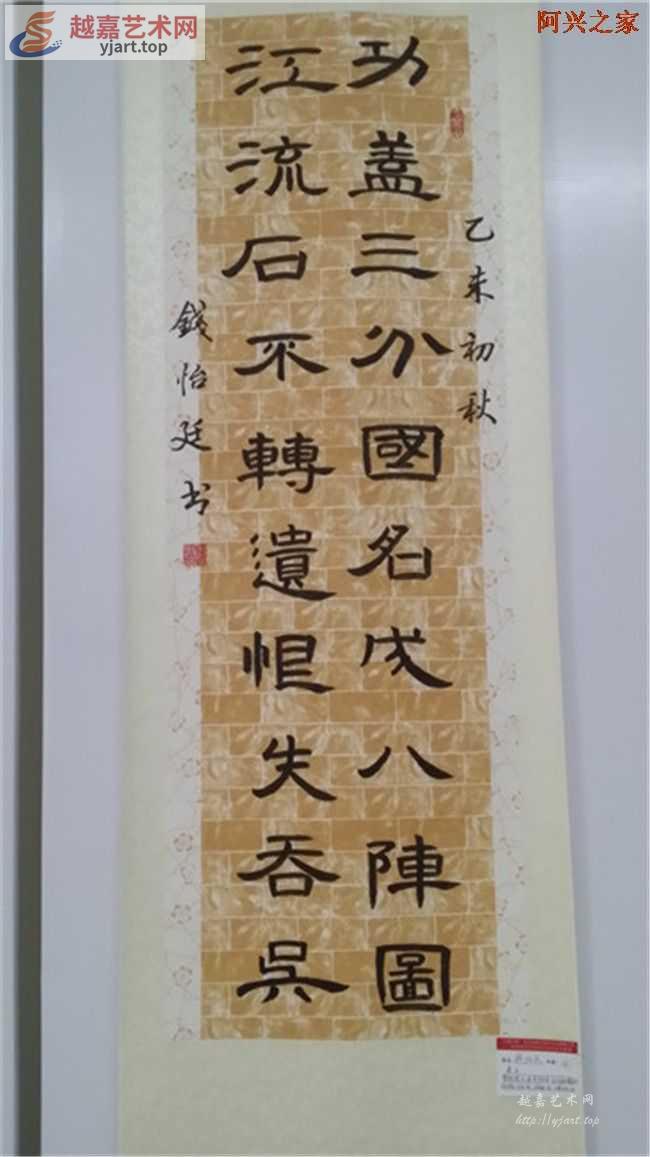 越嘉艺术网
yjart.top
阿兴之家
乙未初秋
功蓋三分國名成八陣圖
江流石不轉遺恨失吞吳
錢怡廷书
越嘉艺术网
http://yjart.top